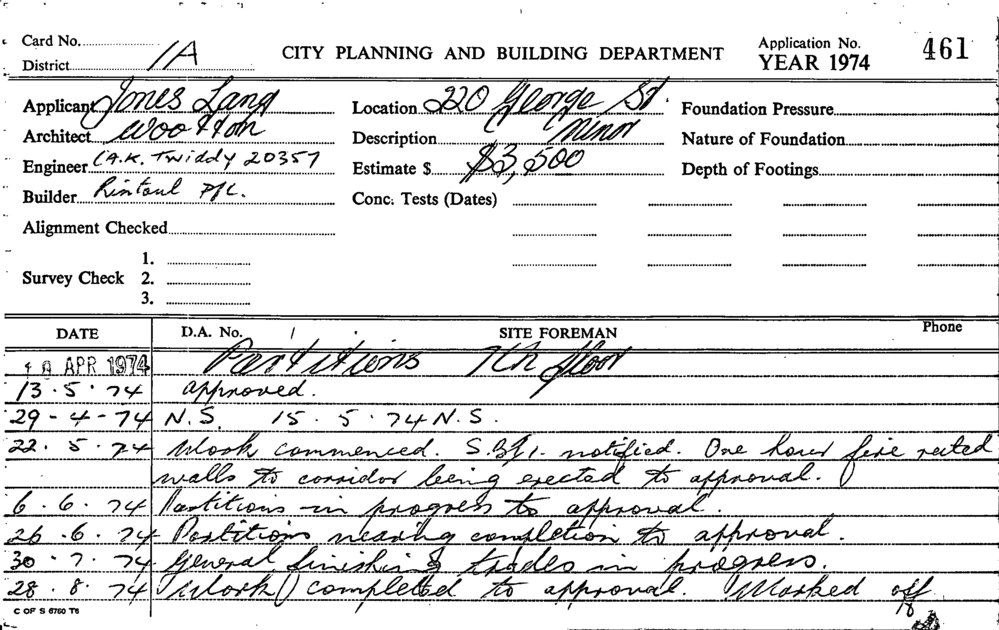 Card No. CITY PLANNING AND BUILDING DEPARTMENT Application No. 461
District 1A YEAR 1974
Applicant Jones Lang Location 220 George St. Foundation Pressure
Architect Wootton Description Minor Nature of Foundation
Engineer (A.K. Twiddy 20357 Estimate $ $3,500 Depth of Footings
Builder Rintoul P/L. Conc. Tests (Dates)
Alignment Checked
1.
Survey Check 2.
3.
DATE D.A. No. / SITE FOREMAN Phone
APR 1974 Partitions 7th floor
13.5.74 approved.
29-4-74 N.S. 15.5.74 N.S.
22.5.74 Work commenced. S.B.I. notified. One hour fire rated
walls to corridor being erected to approval.
6.6.74 Partitions in progress to approval.
26.6.74 Partitions nearing completion to approval.
30.7.74 General finishing trades in progress.
28.8.74 Work completed to approval. Marked off
C OF S 6760 T6